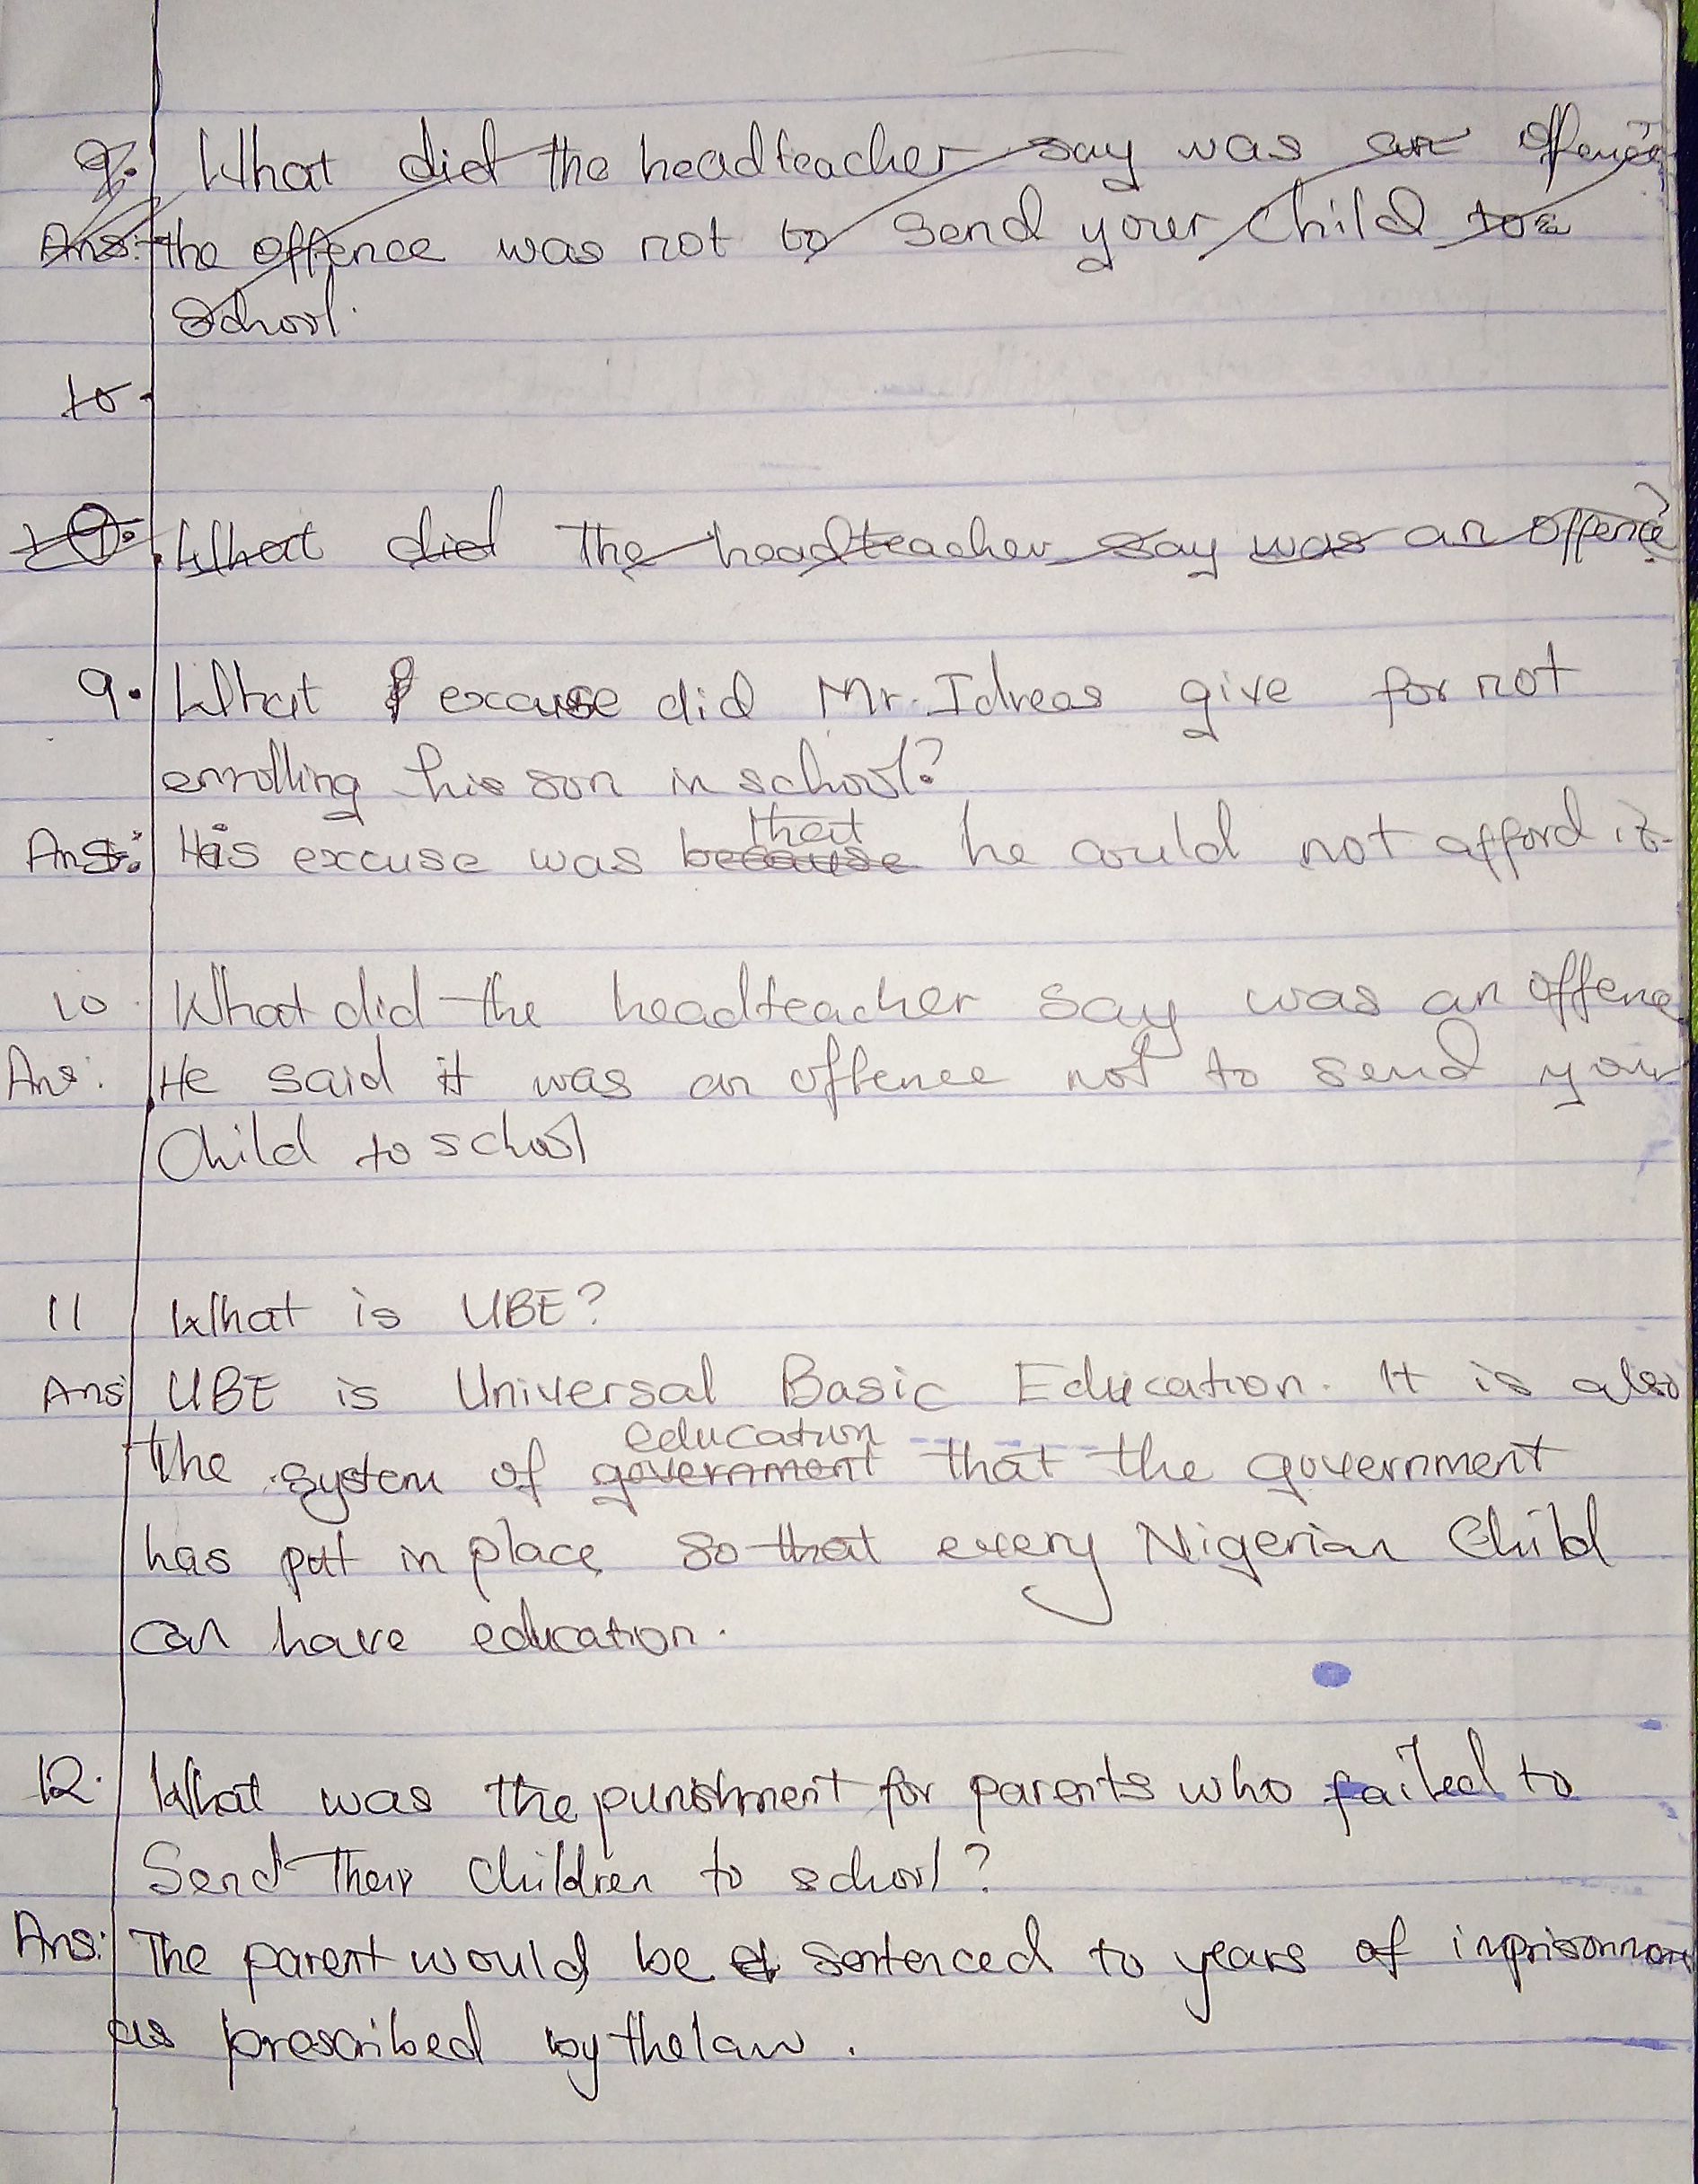 9. What did the headteacher say was an offence?
Ans:- the offence was not to send your child to
school.
10.
10. What did the headteacher say was an offence?
9. What excuse did Mr. Idrees give for not
enrolling his son in school?
that
Ans: His excuse was because he could not afford it.
10. What did the headteacher say was an offence
Ans: He said it was an offence not to send your
Child to school
11 What is UBE?
Ans UBE is Universal Basic Education. It is also
education
the system of government that the government
has put in place so that every Nigerian Child
can have education.
12. What was the punishment for parents who failed to
Send their children to school?
Ans: The parent would be sentenced to years of inprisonment
as prescribed by the law.